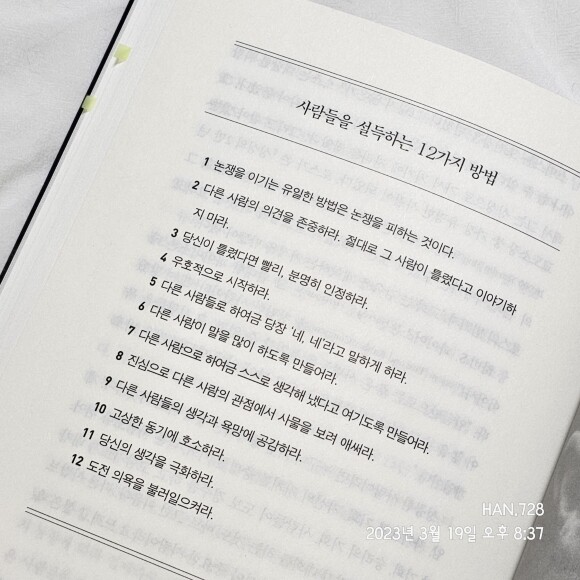 사람들을 설득하는 12가지 방법
1 논쟁을 이기는 유일한 방법은 논쟁을 피하는 것이다.
2 다른 사람의 의견을 존중하라. 절대로 그 사람이 틀렸다고 이야기하
지 마라.
3 당신이 틀렸다면 빨리, 분명히 인정하라.
4 우호적으로 시작하라.
5 다른 사람들로 하여금 당장 '네, 네'라고 말하게 하라.
6 다른 사람이 말을 많이 하도록 만들어라.
7 다른 사람으로 하여금 스스로 생각해 냈다고 여기도록 만들어라.
8 진심으로 다른 사람의 관점에서 사물을 보려 애써라.
9 다른 사람들의 생각과 욕망에 공감하라.
10 고상한 동기에 호소하라.
11 당신의 생각을 극화하라.
12 도전 의욕을 불러일으켜라.
HAN.728
2023년 3월 19일 오후 8:37